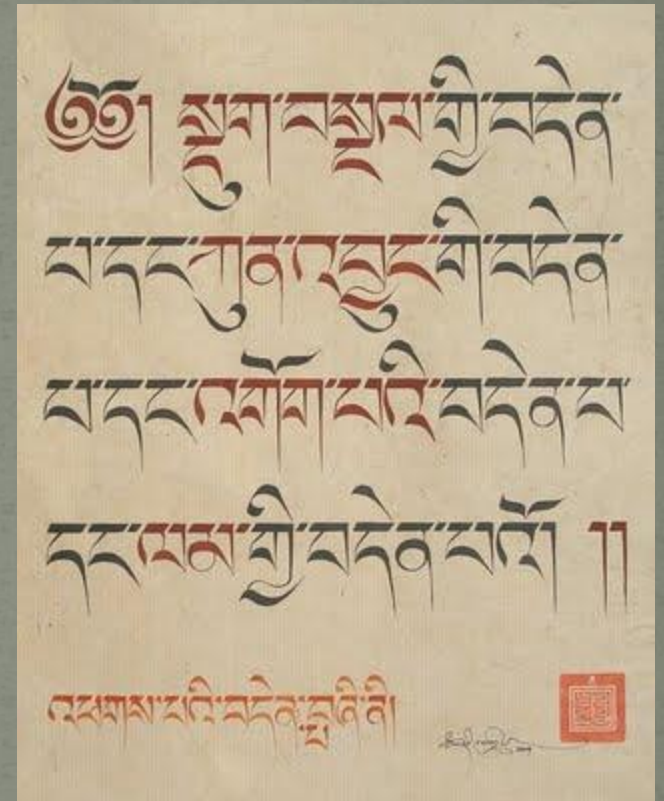 ༄༅། སྡུག་བསྔལ་གྱི་བདེན་
པ་དང་ཀུན་འབྱུང་གི་བདེན་
པ་དང་འགོག་པའི་བདེན་པ་
དང་ལམ་གྱི་བདེན་པའོ། །།
འཕགས་པའི་བདེན་བཞི་ནི།